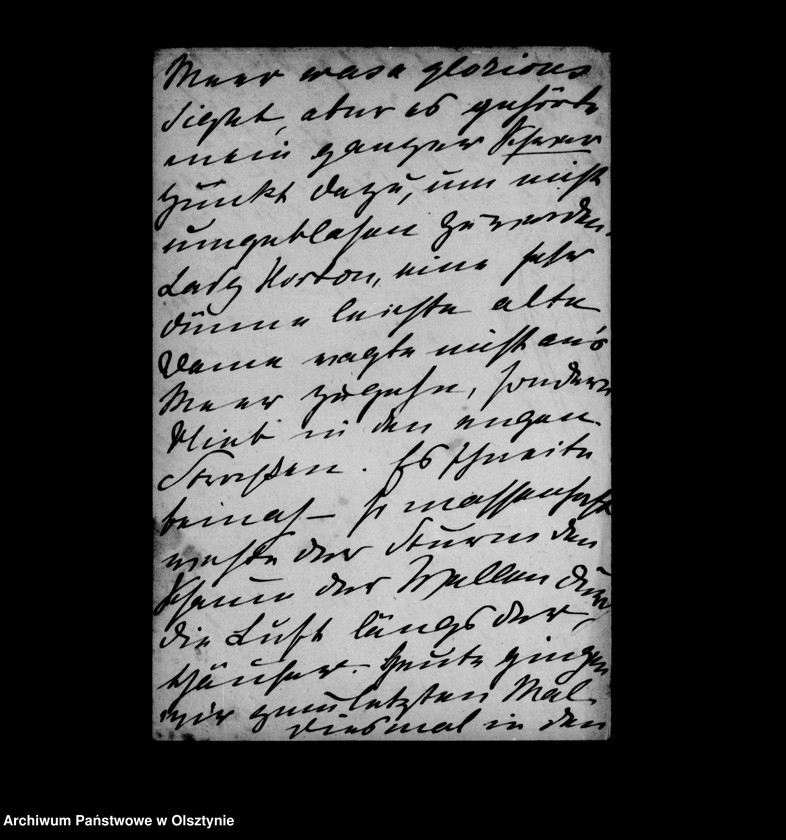 Meer was a glorious
sight, aber es gehörte
mein ganzer Schwer
punkt dazu, um nicht
umgeblasen zu werden.
Lady Horton, eine sehr
dünne leichte alte
Dame wagte nicht an's
Meer zu gehn, sondern
blieb in den engen
Straßen. Es schneite
beinah – so massenhaft
wehte der Sturm den
Schaum der Wellen durch
die Luft längs der
Häuser. Heute gingen
wir zum letzten Mal
diesmal in den
Archiwum Państwowe w Olsztynie